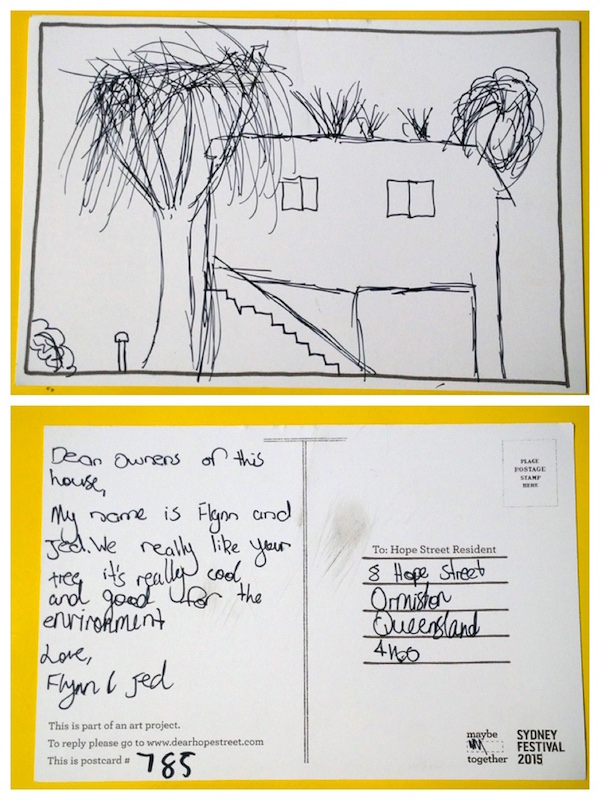 Dear owners of this
house,
My name is Flynn and
Jed. We really like your
tree it's really cool
and good for the
environment
Love,
Flynn & Jed
This is part of an art project.
To reply please go to www.dearhopestreet.com
This is postcard # 785
PLACE
POSTAGE
STAMP
HERE
To: Hope Street Resident
8 Hope Street
Ormiston
Queensland
4160
maybe
together
SYDNEY
FESTIVAL
2015